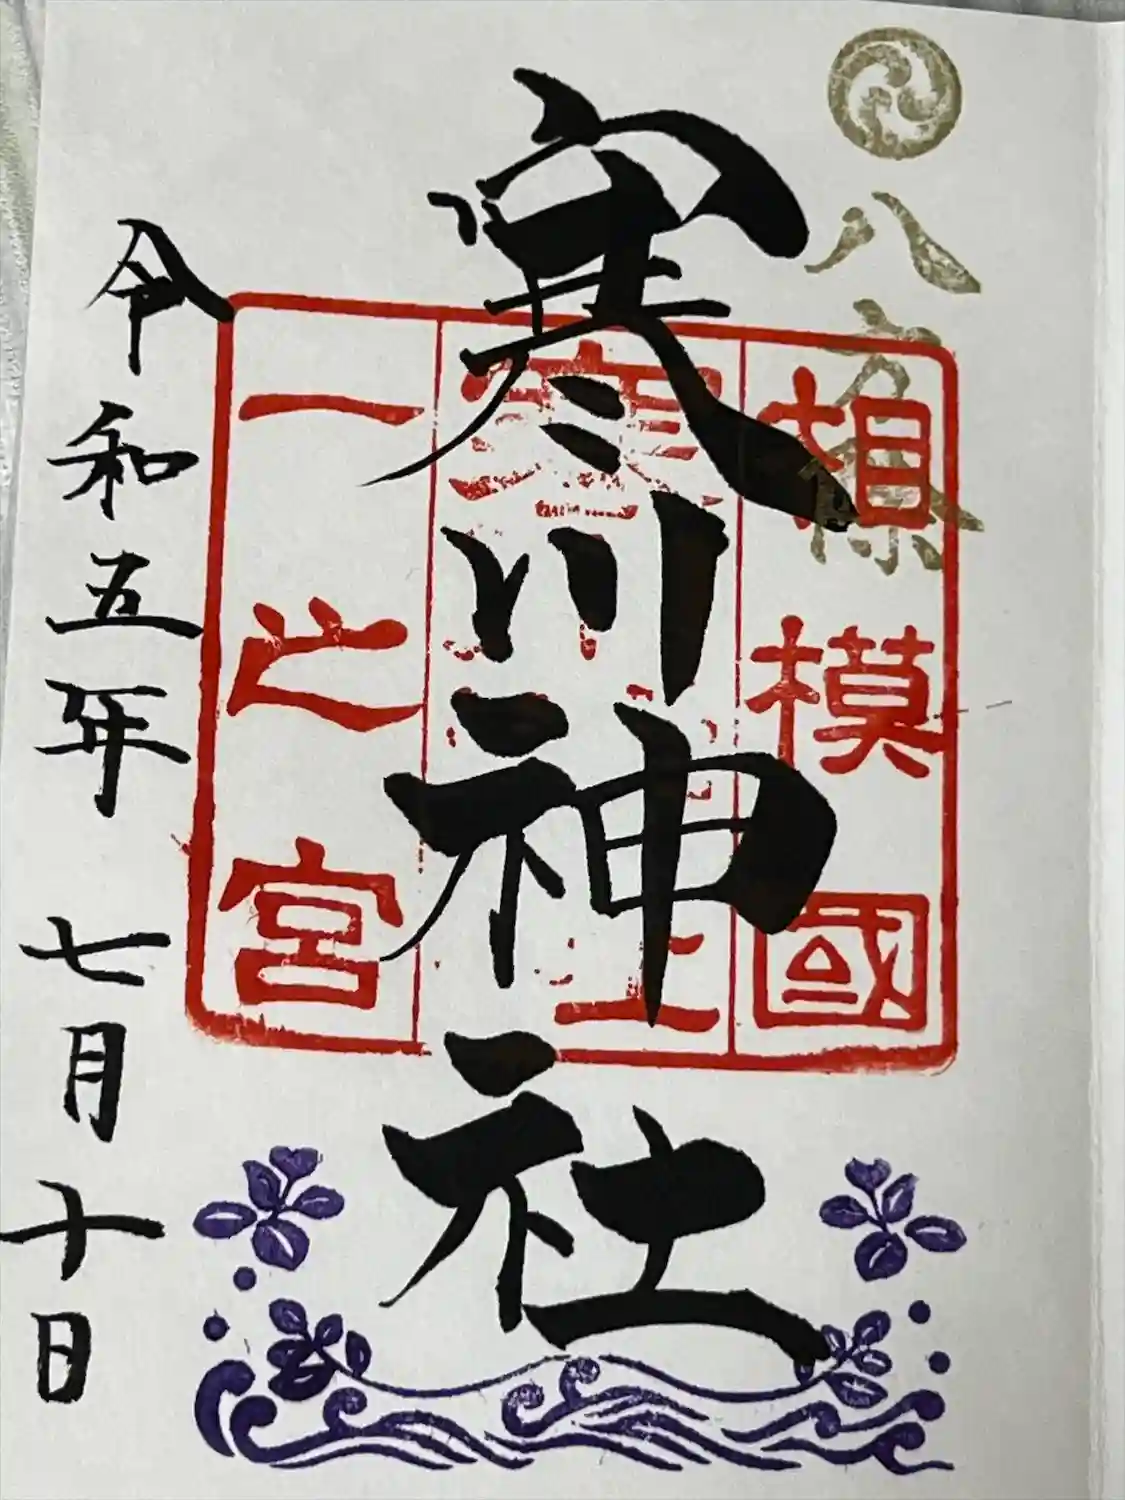 八方除
相模國
寒川神社
寒川神社
一之宮
令和五年 七月十日